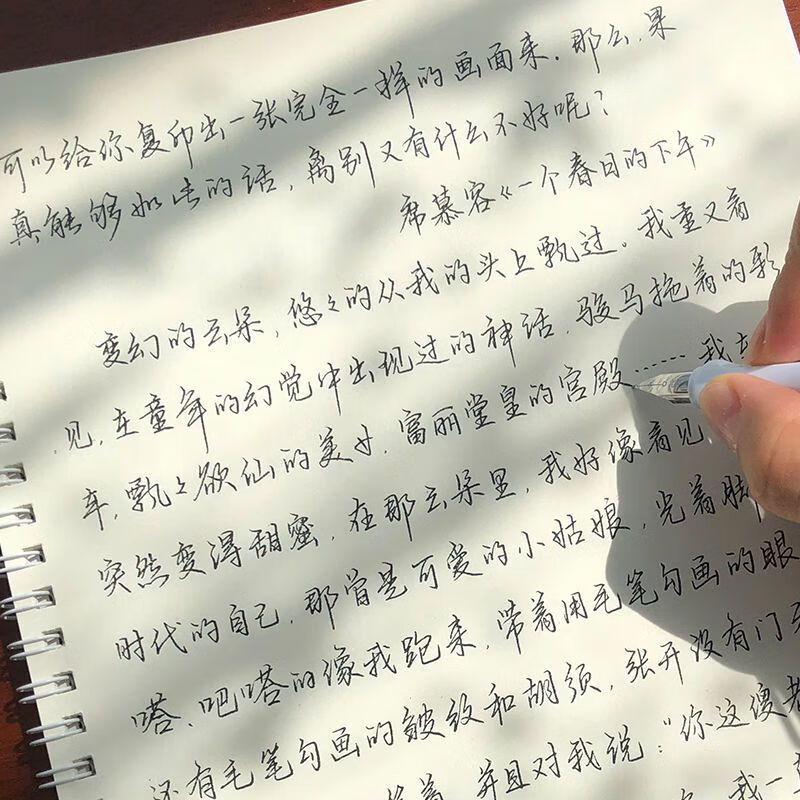 可以给你复印出一张完全一样的画面来。那么，果
真能够如此的话，离别又有什么不好呢？
席慕容《一个春日的下午》
变幻的云朵，悠々的从我的头上飘过。我重又看
见，在童年的幻觉中出现过的神话，骏马拖着的彩
车，飘々欲仙的美女，富丽堂皇的宫殿……我
突然变得甜蜜，在那云朵里，我好像看见
时代的自己，那曾是可爱的小姑娘，光着脚
嗒、吧嗒的像我跑来，带着用毛笔勾画的眼
还有毛笔勾画的皱纹和胡须，张开没有门牙
着，并且对我说：“你这傻老
我一